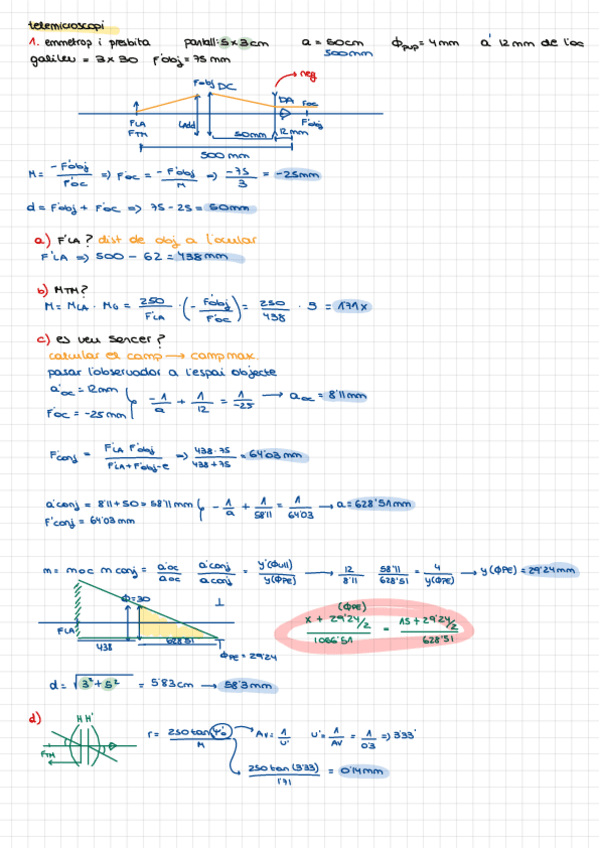 telemicroscopi
1. emmetrop i presbita pantall: 5 x 3 cm a = 50cm ϕpup = 4mm a' 12 mm de l'oc
500mm
galileu = 3 x 30 f'obj = 75 mm
neg
Fobj DC
DA
Foc
FLA
FTM
LAdd
50mm
12mm
F'obj
500 mm
M = -f'obj / f'oc => f'oc = -f'obj / M => -75 / 3 = -25mm
d = f'obj + f'oc => 75 - 25 = 50mm
a) F'LA? dist de obj a l'ocular
F'LA => 500 - 62 = 438mm
b) MTM?
M = MLA · MG = 250 / F'LA · (- f'obj / f'oc) = 250 / 438 · 3 = 1'71x
c) es veu sencer?
calcular el camp → camp max.
passar l'observador a l'espai objecte
a'oc = 12mm
f'oc = -25mm
-1/a + 1/12 = 1/-25 → aoc = 8'11mm
F'conj = F'LA F'obj / F'LA + F'obj - e => 438·75 / 438+75 = 64'03mm
a'conj = 8'11 + 50 = 58'11 mm
F'conj = 64'03mm
-1/a + 1/58'11 = 1/64'03 → a = 628'51mm
m = moc mconj = a'oc/aoc a'conj/aconj = y'(ϕull)/y(ϕPE) → 12/8'11 58'11/628'51 = 4/y(ϕPE) → y(ϕPE) = 29'24mm
ϕ=30
FLA
438
628'51
ϕPE = 29'24
(ϕPE)
x + 29'24/2 / 1066'51 = 15 + 29'24/2 / 628'51
d = √3² + 5² = 5'83cm → 58'3mm
d)
H H'
FTM
r = 250 tan(u'o) / M
Av = 1/u' u' = 1/AV = 1/0'3 => 3'33'
250 tan (3'33) / 1'71 = 0'14mm